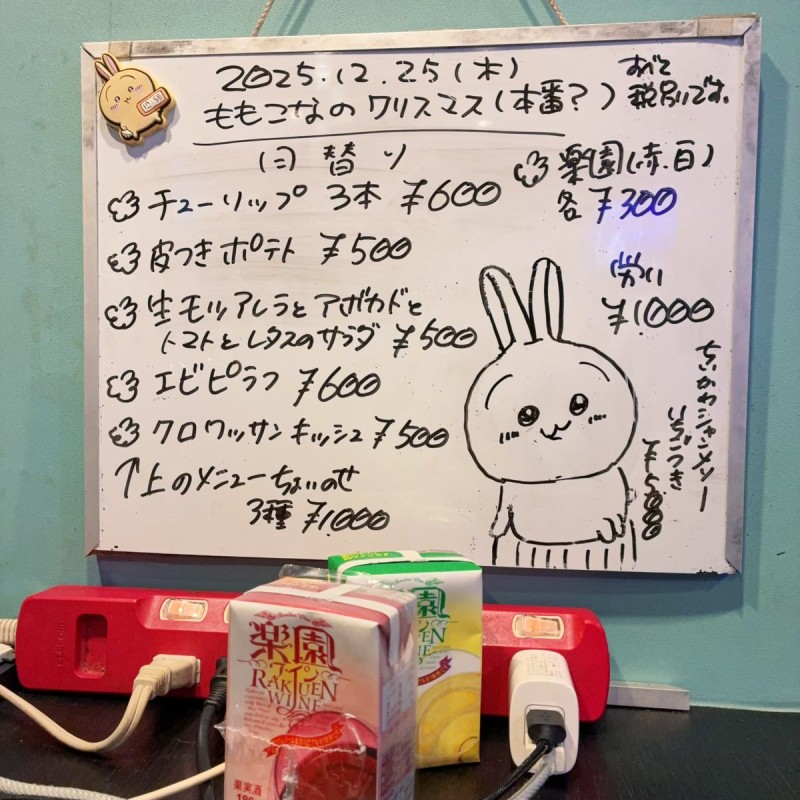 2025.12.25(木)
ももこなのクリスマス(本番?)
あと
税別です。
日替り
チューリップ 3本 ¥600
皮つきポテト ¥500
生モッツアレラとアボカドと
トマトとレタスのサラダ ¥500
エビピラフ ¥600
クロワッサンキッシュ ¥500
↑上のメニューちょいのせ
3種 ¥1000
楽園(赤.白)
各 ¥300
労い
¥1.000
ちいかわシャンメリー
いちごつき
¥5000
楽園
ワイン
RAKUEN
WINE
果実酒
園